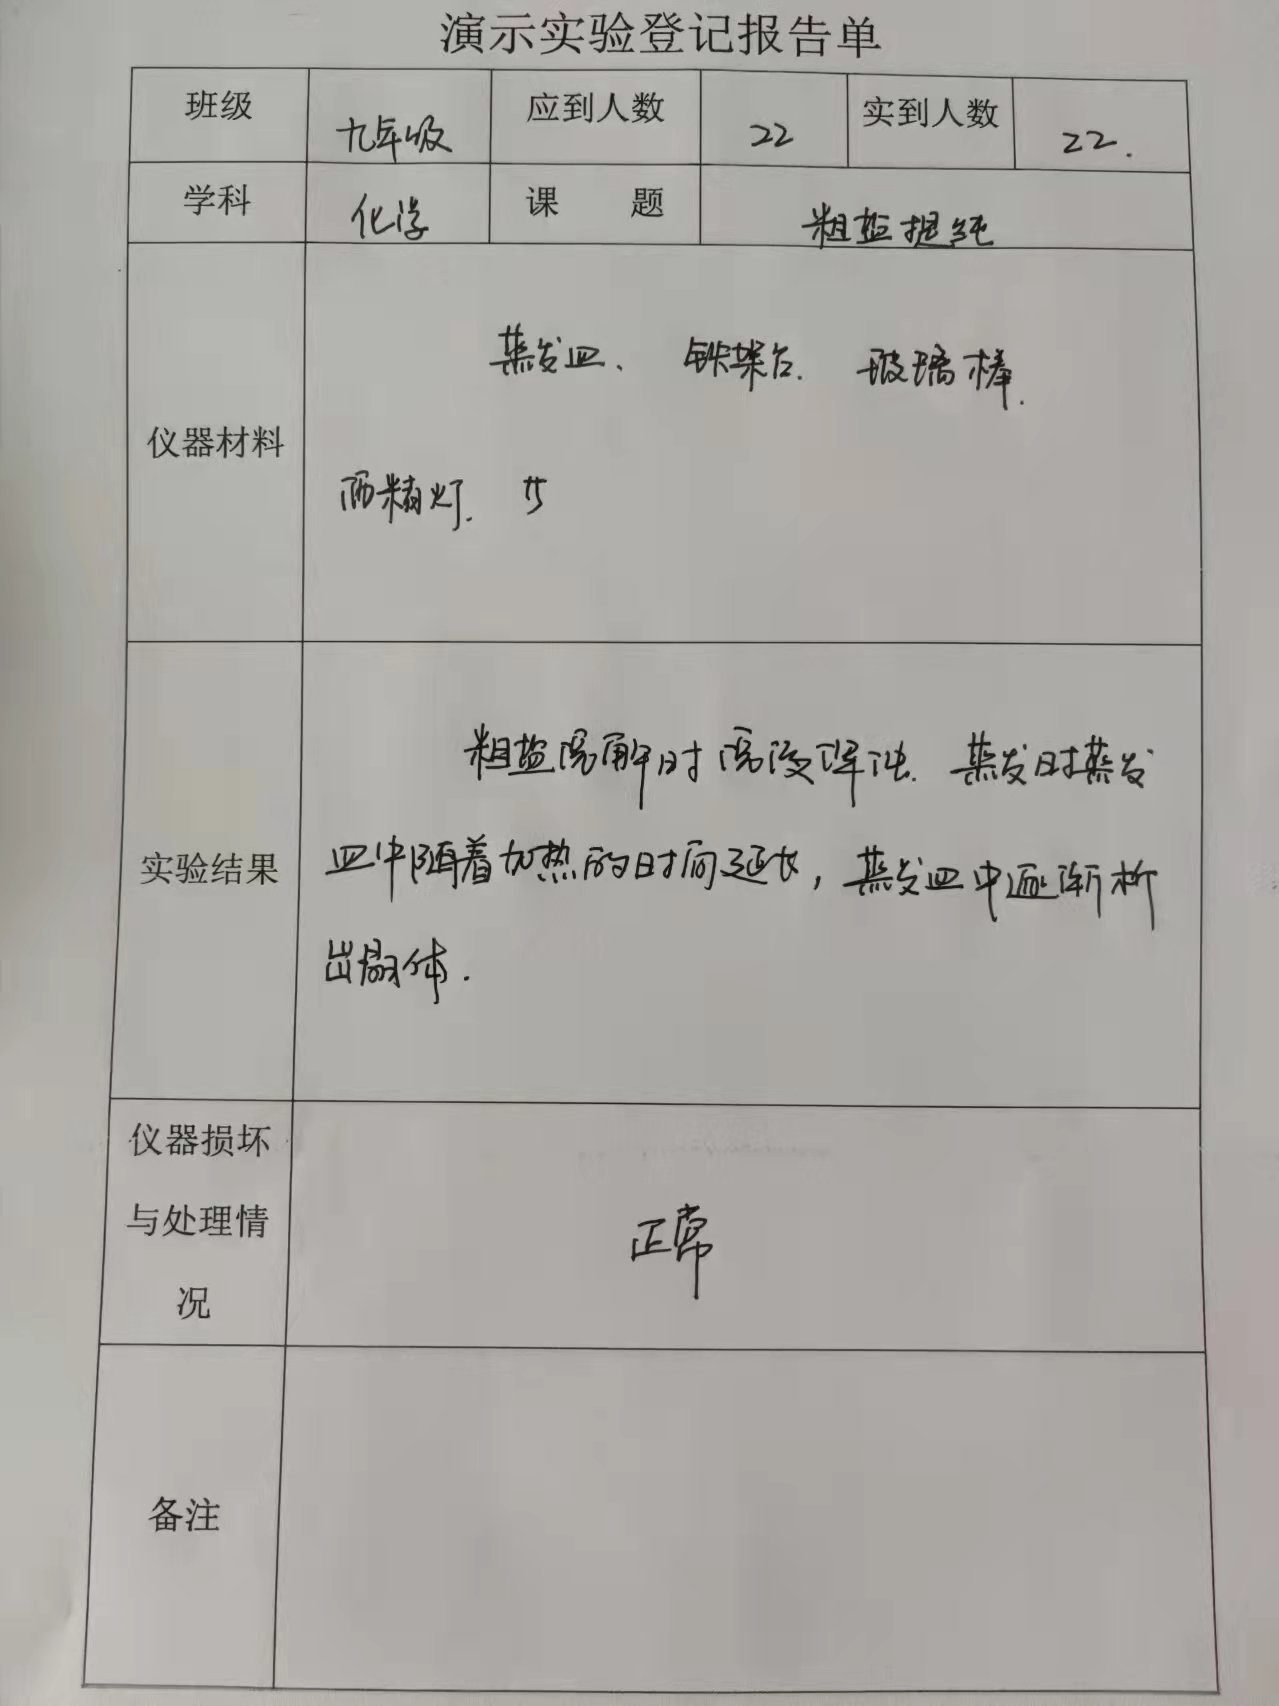 演示实验登记报告单
班级 九年级 应到人数 22 实到人数 22.
学科 化学 课 题 粗盐提纯
仪器材料
蒸发皿、 铁架台. 玻璃棒.
酒精灯.
实验结果
粗盐溶解时溶液浑浊. 蒸发时蒸发
皿中随着加热的时间延长，蒸发皿中逐渐析
出晶体.
仪器损坏
与处理情
况
正常
备注